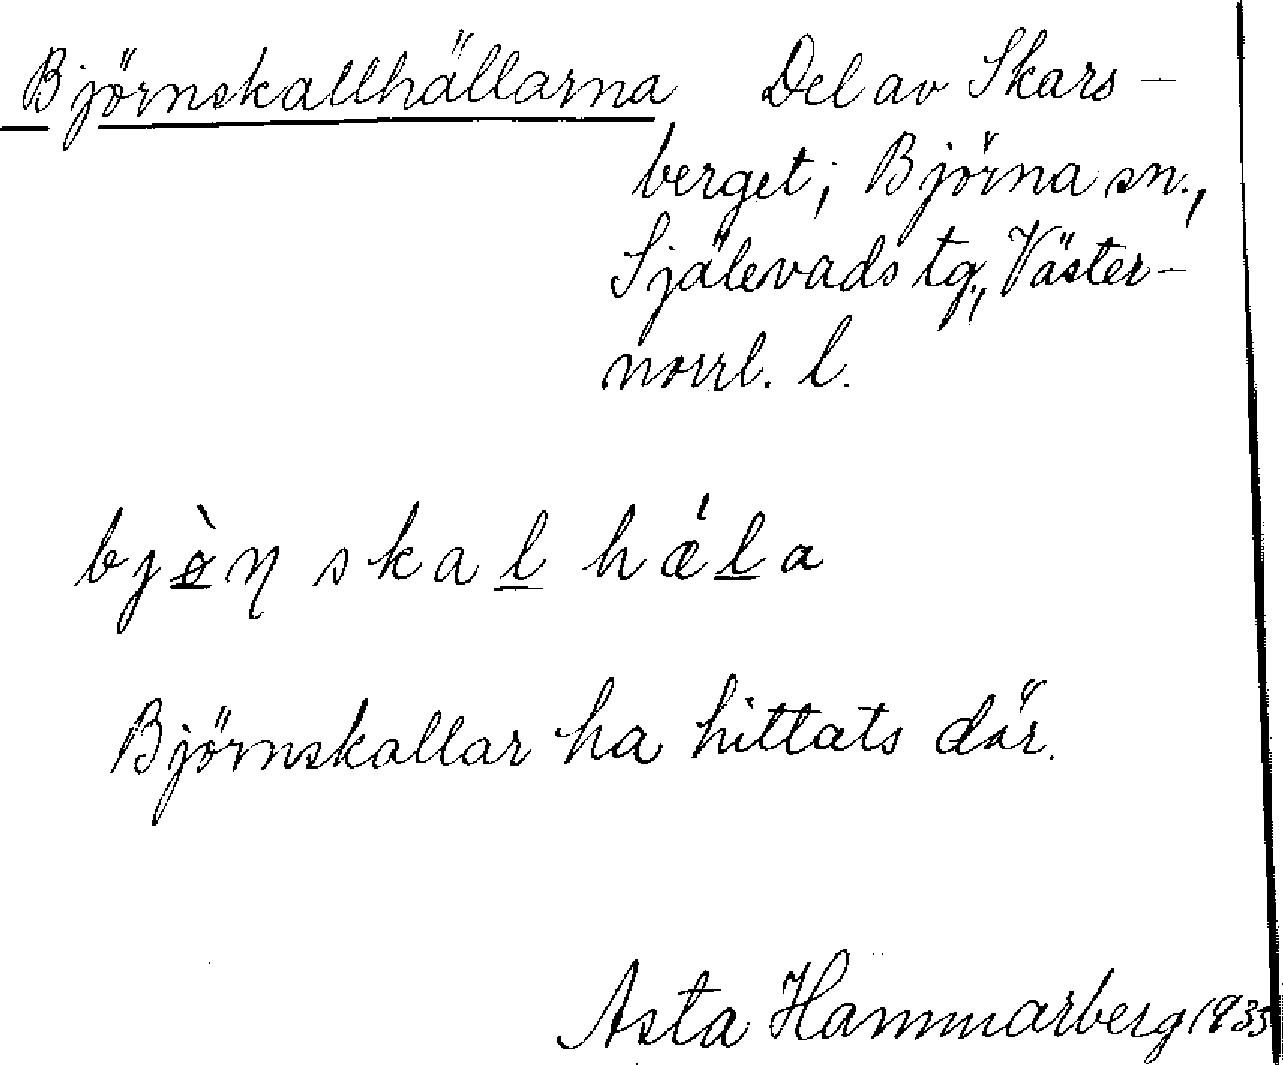 Björnskallhällarna Del av Skars-
berget; Björna sn.,
Själevads tg., Väster-
norrl. l.
bjø̲̀ŋ skal̲ hǽl̲a
Björnskallar ha hittats där.
Asta Hammarberg 1935